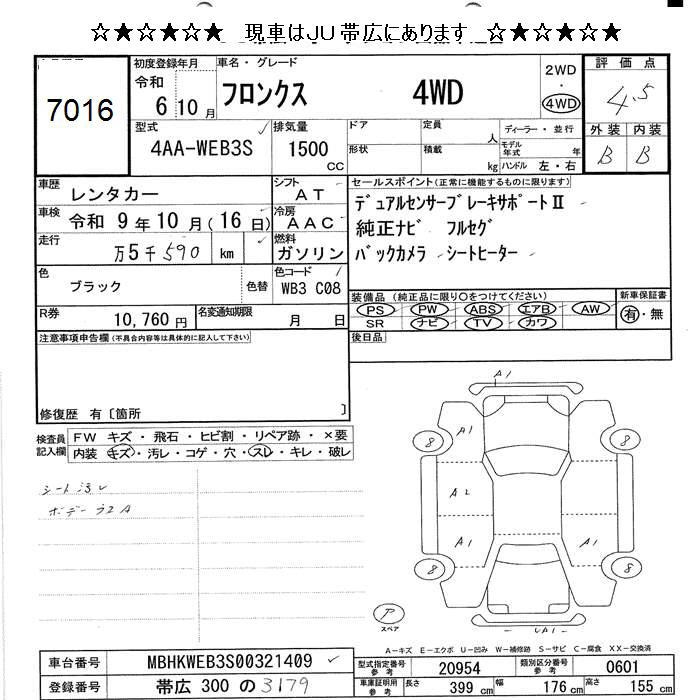 ☆★☆★☆★ 現車はJU帯広にあります ☆★☆★☆★
7016
初度登録年月 車名・グレード
令和 6 10 月 フロンクス 4WD
2WD
・
4WD
評価点
4.5
外装 内装
B B
型式 排気量 ドア 定員 人 ディーラー・並行
4AA-WEB3S 1500 CC
形状 積載 kg モデル年式 年
ハンドル 左・右
車歴 レンタカー シフト AT
セールスポイント(正常に機能するものに限ります)
車検 令和 9 年 10 月 (16 日) 冷房 AAC
デュアルセンサーブレーキサポートⅡ
純正ナビ フルセグ
バックカメラ シートヒーター
走行 万 5 千 590 km 燃料 ガソリン
色 ブラック 色替 色コード WB3 C08
装備品 (純正品に限り○をつけてください) 新車保証書
PS PW ABS エアB AW 有・無
SR ナビ TV カワ
R券 10,760 円 名変通知期限 月 日
注意事項申告欄(不具合内容等は具体的に記入して下さい) 後日品
修復歴 有〔箇所 〕
検査員記入欄 FW キズ・飛石・ヒビ割・リペア跡・×要
内装 キズ・汚レ・コゲ・穴・スレ・キレ・破レ
シート汚レ
ボデーウスA
A1
A1
8 8
A2
A1 A1
8 8
A1
ア
スペア
A-キズ E-エクボ U-凹み W-補修跡 S-サビ C-腐食 XX-交換済
車台番号 MBHKWEB3S00321409 型式指定番号 参考 20954 類別区分番号 参考 0601
登録番号 帯広 300 の 3179 車庫証明用 参考 長さ 399 cm 幅 176 cm 高さ 155 cm